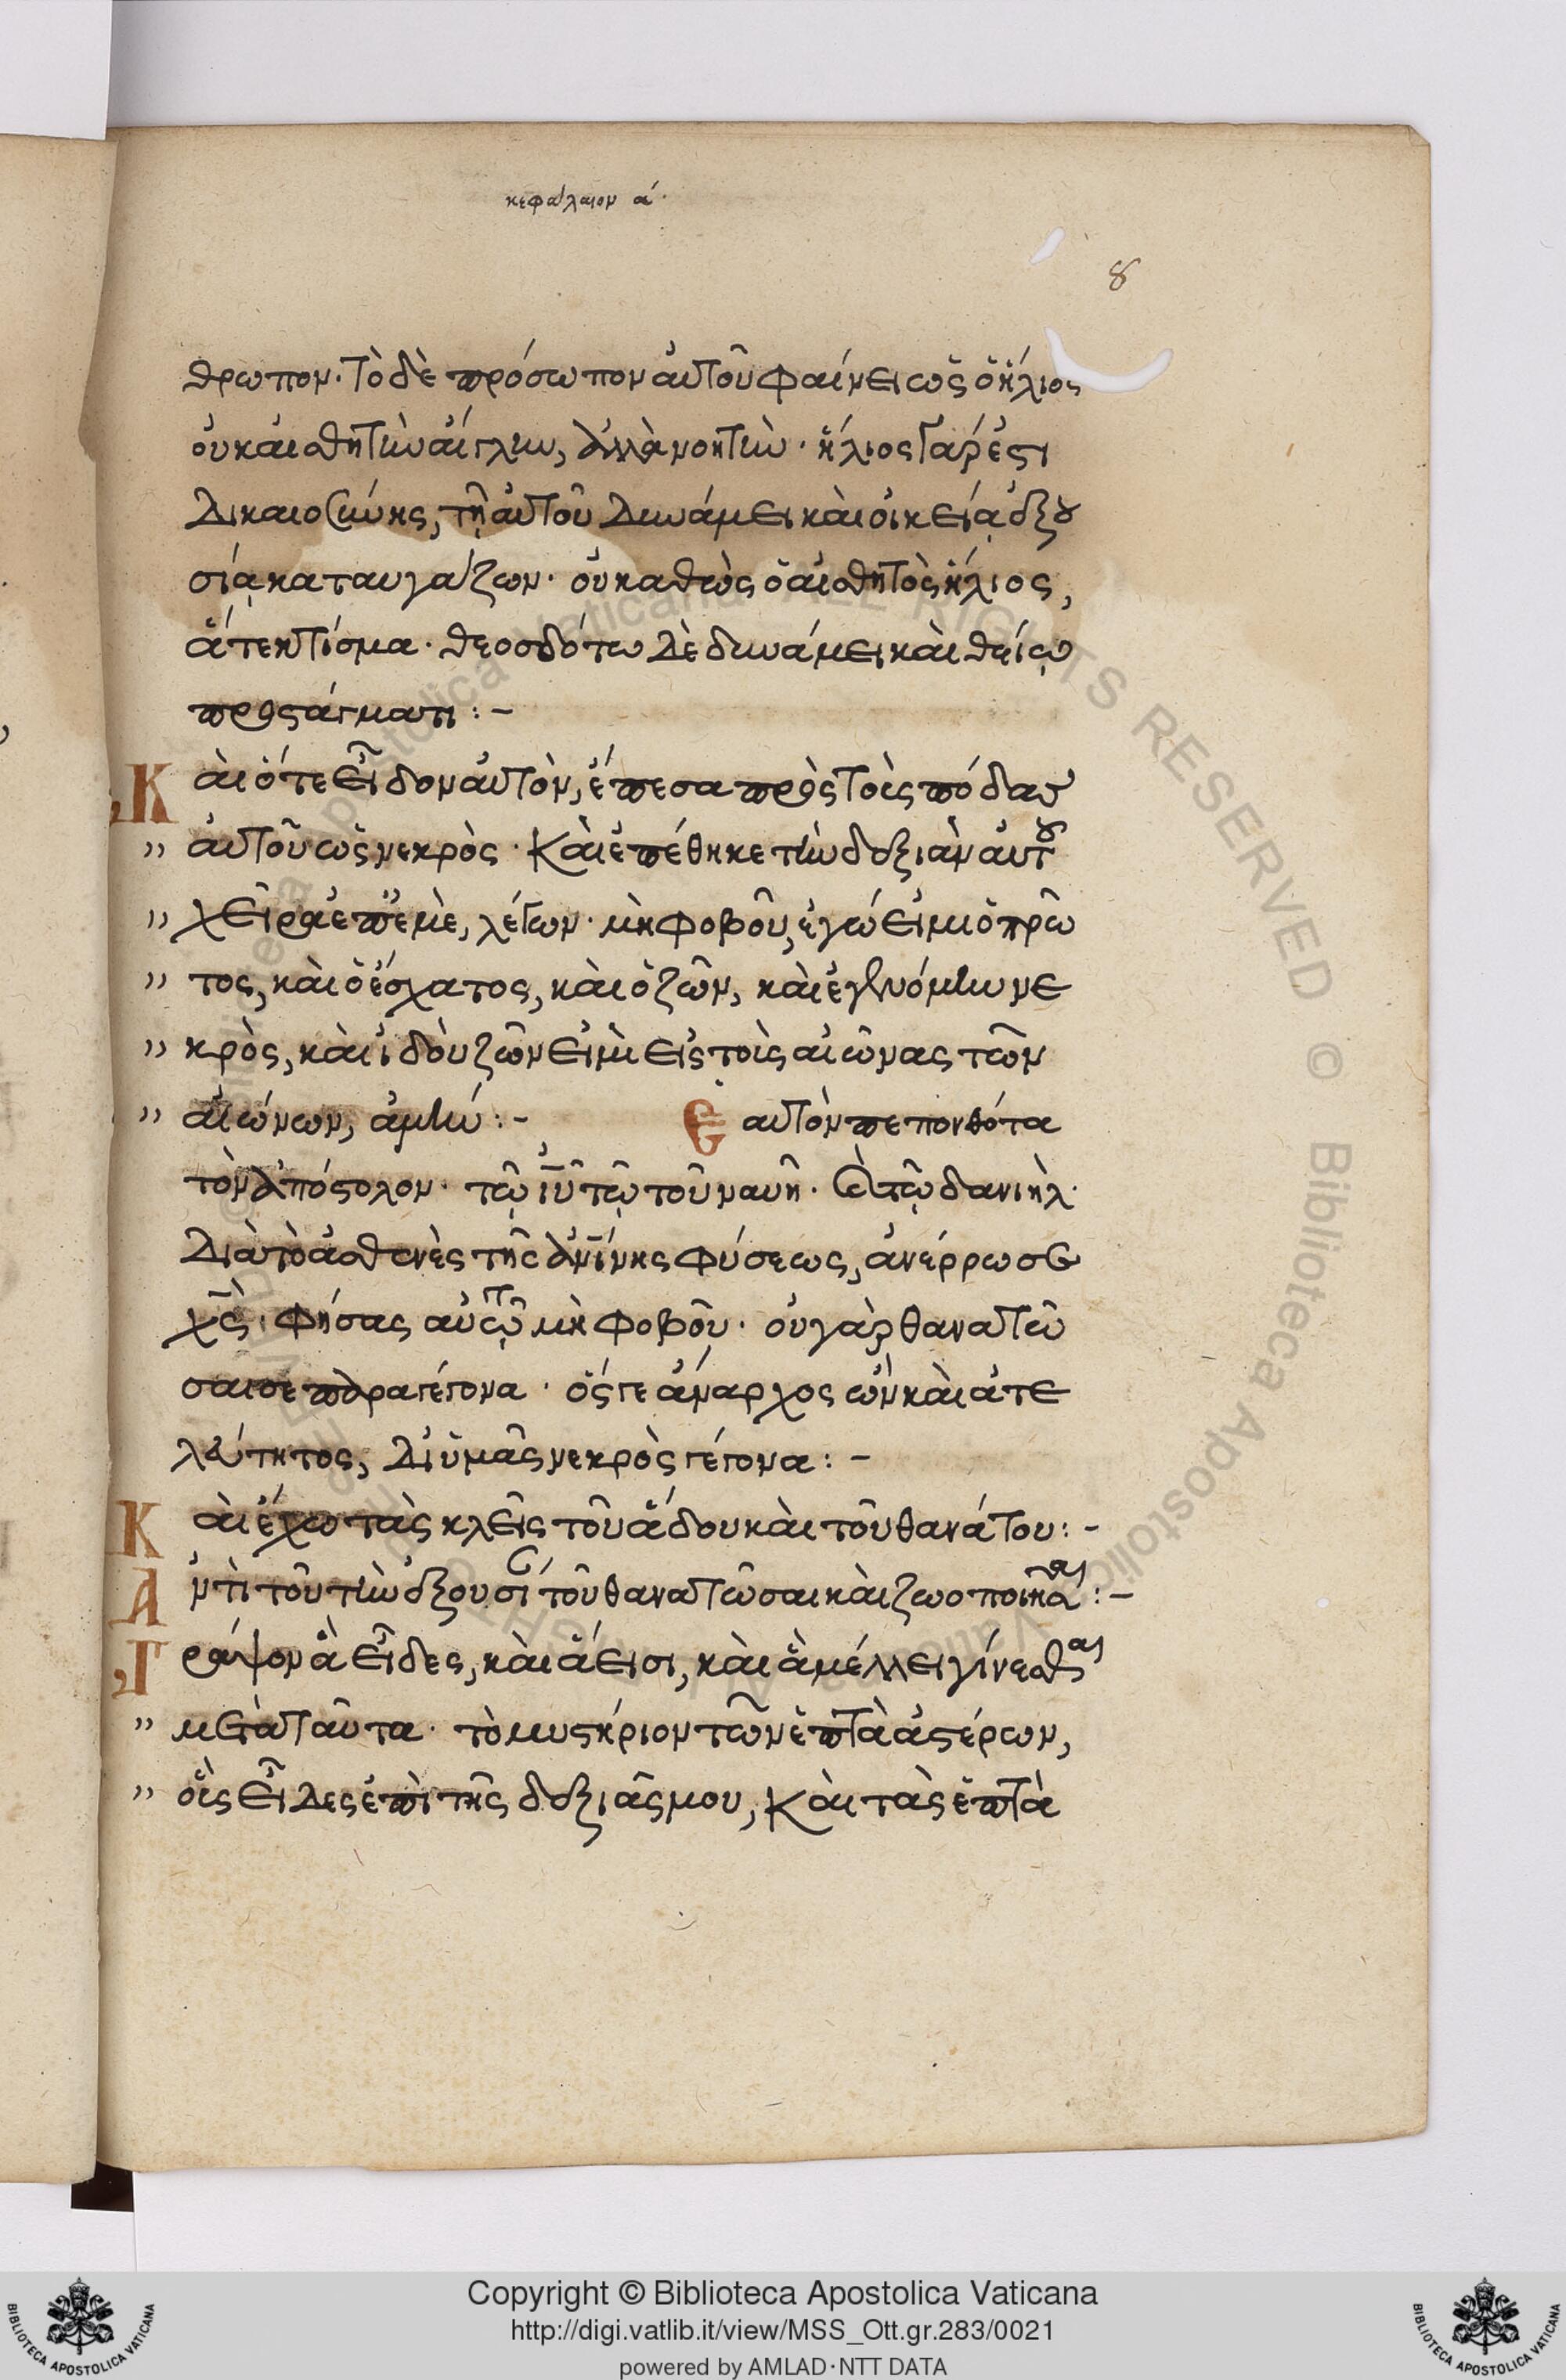 κεφάλαιον α´.
8
θρωπον· τὸ δὲ πρόσωπον αὐτοῦ φαίνει ὡς ὁ ἥλιος
οὐκ αἰσθητὴν αἴγλην, ἀλλὰ νοητήν· ἥλιος γάρ ἐστι
δικαιοσύνης, τῇ αὐτοῦ δυνάμει καὶ οἰκείᾳ ἐξου
σίᾳ καταυγάζων· οὐ καθὼς ὁ αἰσθητὸς ἥλιος,
ἅτε κτίσμα· θεοσδότω δὲ δυνάμει καὶ θείῳ
προστάγματι :–
Καὶ ὅτε εἶδον αὐτὸν, ἔπεσα πρὸς τοὺς πόδας
" αὐτοῦ ὡς νεκρὸς· Καὶ ἐπέθηκε τὴν δεξιὰν αὐτοῦ
" χεῖρα ἐπ' ἐμὲ, λέγων· μὴ φοβοῦ, ἐγώ εἰμι ὁ πρῶ
" τος, καὶ ὁ ἔσχατος, καὶ ὁ ζῶν, καὶ ἐγενόμην νε
" κρὸς, καὶ ἰδοὺ ζῶν εἰμὶ εἰς τοὺς αἰῶνας τῶν
" αἰώνων, ἀμήν :– Ε αυτὸν πεπονθότα
τὸν ἀπόστολον· τῷ ιῦ τῷ τοῦ ναυῆ· ἢ τῷ δανιὴλ·
Διὰ τὸ ἀσθενὲς τῆς ἀνίνης φύσεως, ἀνέρρωσε
χς· φήσας αὐτῷ μὴ φοβοῦ· οὐ γὰρ θανατῶ
σαι σε παραγέγονα· ὅς γε ἄναρχος ὢν καὶ ἀτε
λεύτητος, δι' ὑμᾶς νεκρὸς γέγονα :–
Καὶ ἔχω τὰς κλεῖς τοῦ ἅδου καὶ τοῦ θανάτου :–
Ἀντὶ τοῦ τὴν ἐξουσί τοῦ θανατῶσαι καὶ ζωοποιῆσαι :–
Γράψον ἃ εἶδες, καὶ ἅ εισι, καὶ ἃ μέλλει γίνεσθαι
" μετὰ ταῦτα· τὸ μυστήριον τῶν ἑπτὰ ἀστέρων,
" οὓς εἶδες ἐπὶ τῆς δεξιᾶς μου, Καὶ τὰς ἑπτὰ
Copyright © Biblioteca Apostolica Vaticana
http://digi.vatlib.it/view/MSS_Ott.gr.283/0021
powered by AMLAD·NTT DATA